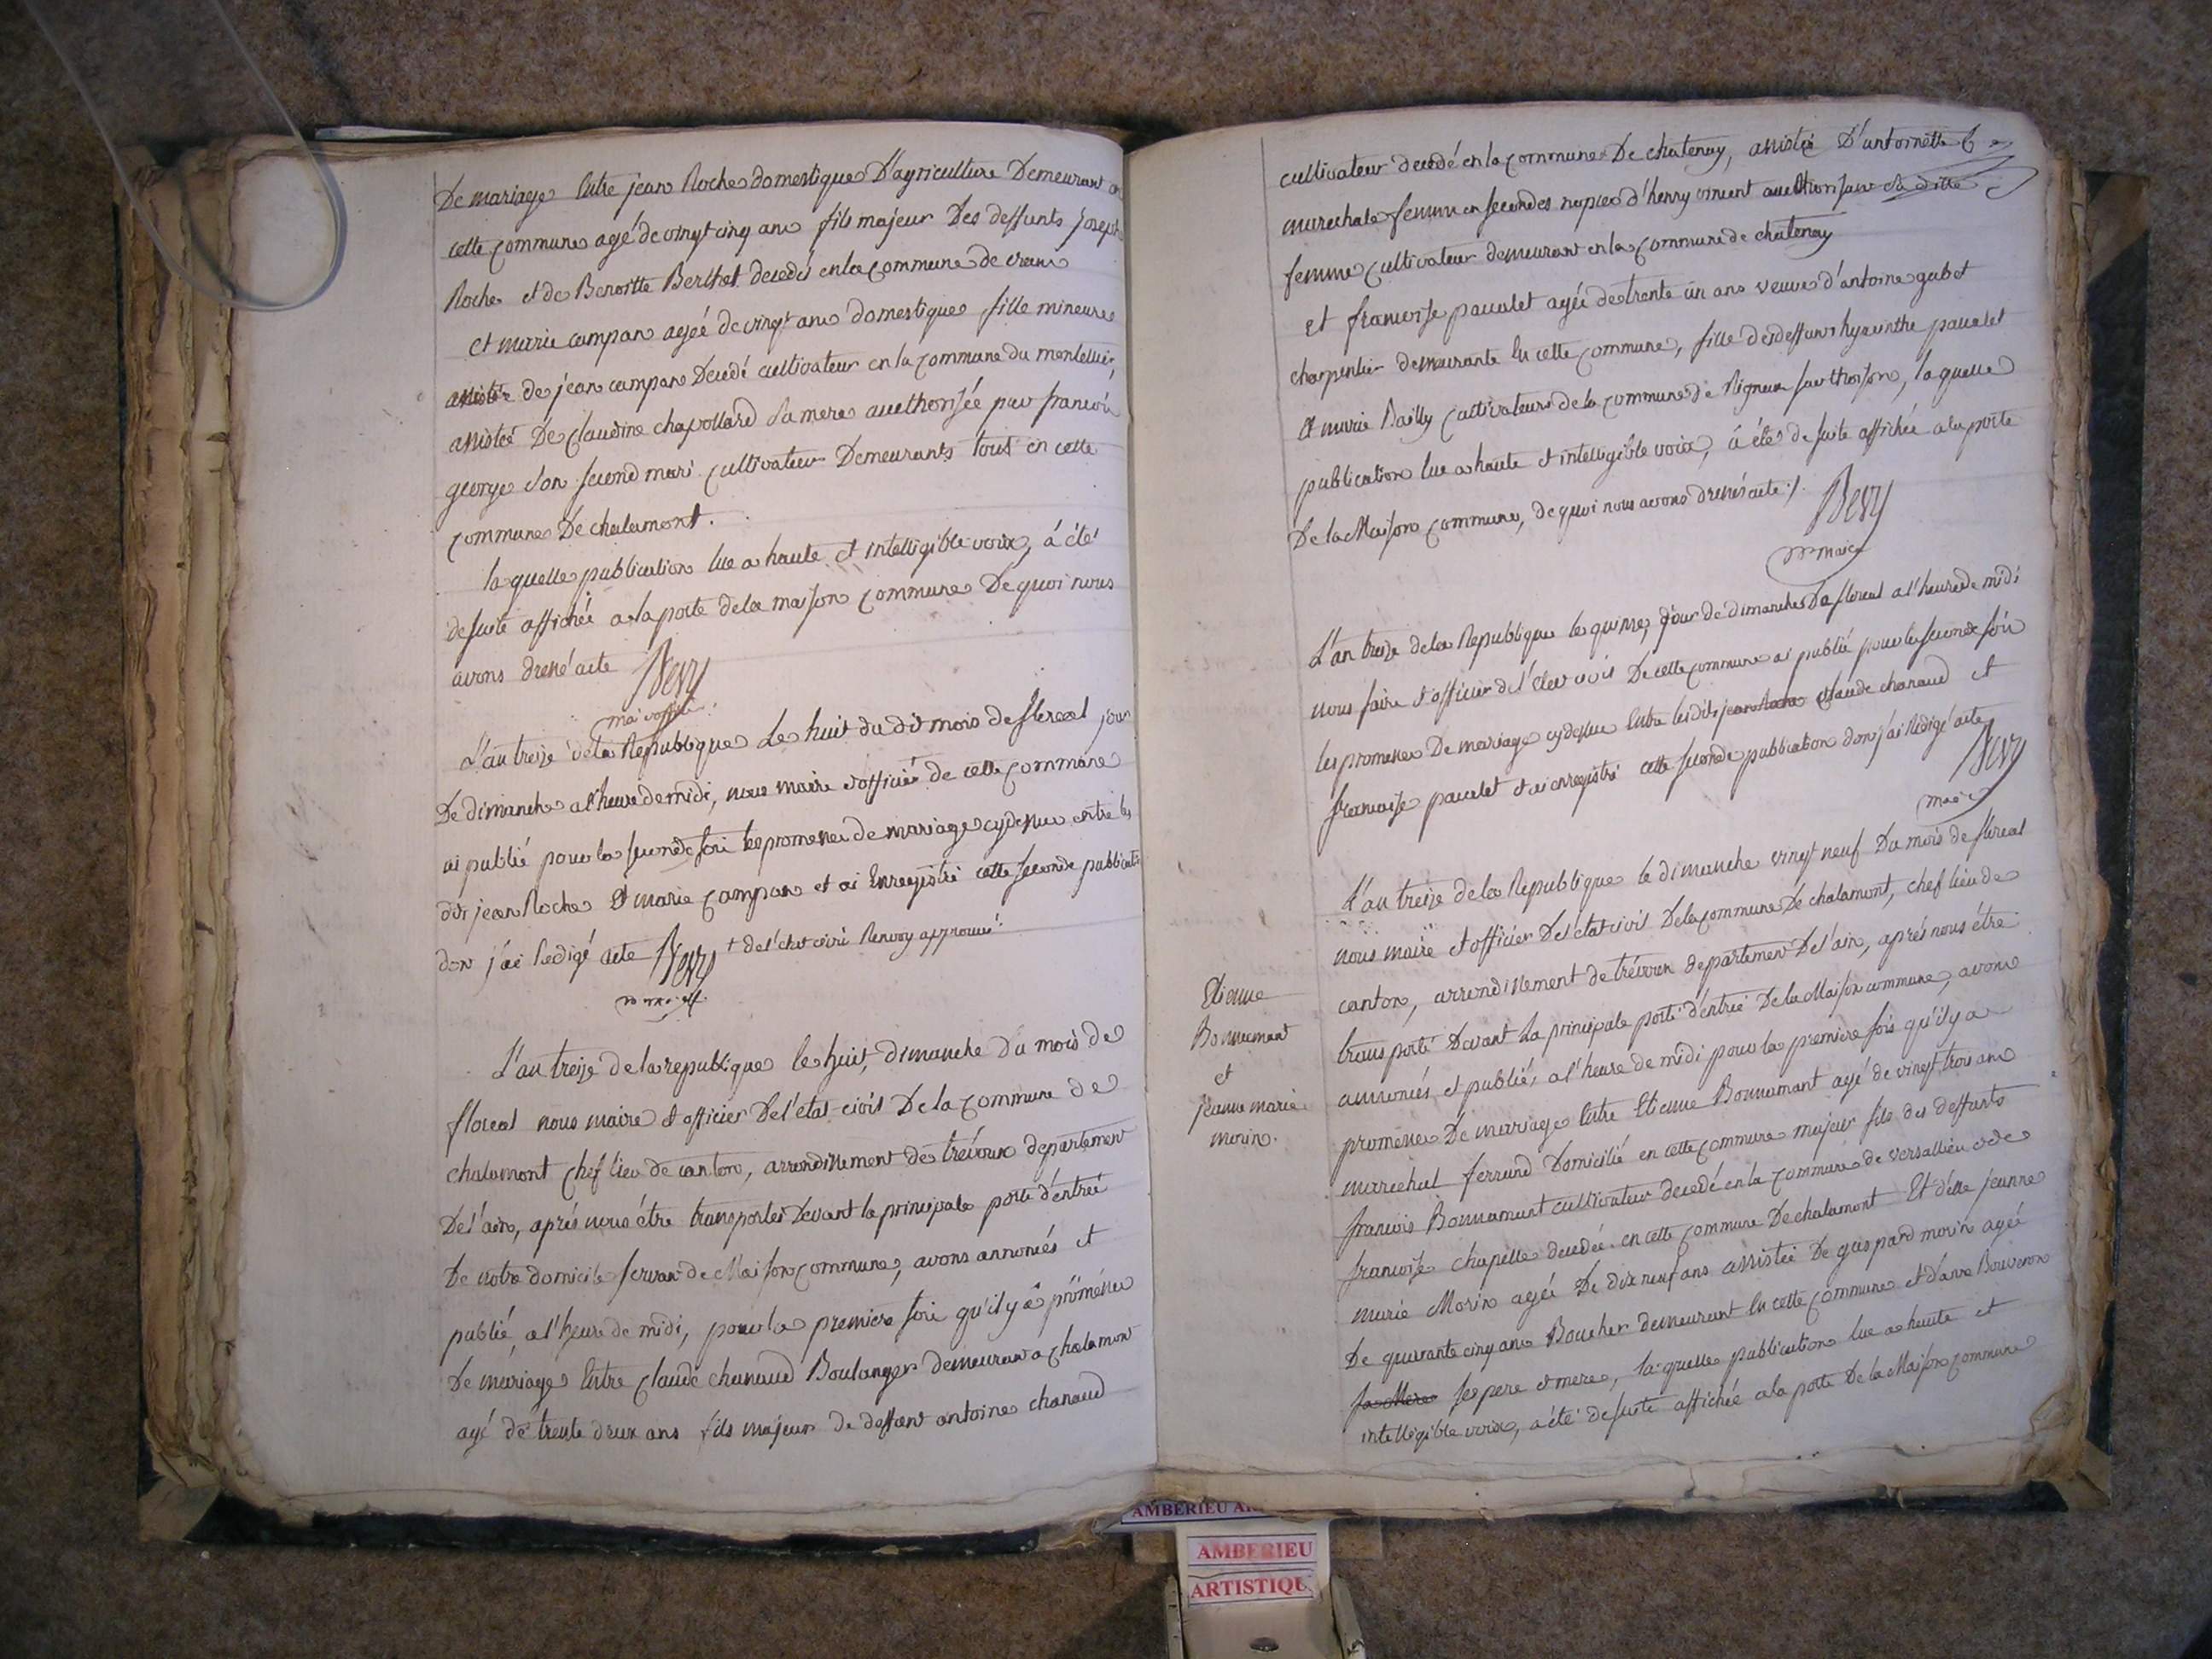 De mariage Entre jean Roche domestique D'agriculture Demeurant en
cette commune agé de vingt cinq ans fils majeur Des deffunts Joseph
Roche et de Benoitte Berthet decedés en la commune de crans
et marie campan agée de vingt ans domestique fille mineure
de jean campan Decedé cultivateur en la commune du montellier,
assistée De Claudine chapollard sa mere aucthorisée par francois
george son second mari cultivateur Demeurants tous en cette
commune De chalamont.
la quelle publication lue a haute et intelligible voix, á été
de suite affichée a la porte de la maison commune De quoi nous
avons dressé acte
L'an treize de la Republique Le huit du dit mois de floreal jour
De dimanche a l'heure de midi, nous maire et officier de cette commune
ai publié pour la seconde fois les promesses de mariage cy dessus entre les
dits jean Roche Et marie campan et ai Enregistré cette seconde publication
don j'ai Redigé acte + de l'etat civil Renvoy approuvé
L'an treize de la republique le huit, dimanche du mois de
floreal nous maire et officier De l'etat civil De la commune de
chalamont chef lieu de canton, arrondissement de trévoux departement
De l'ain, aprés nous étre transportés Devant la principale porte d'entrée
De notre domicile servant de Maison commune, avons annoncés et
publié, a l'heure de midi, pour la premiere fois qu'il y a promésses
De mariage Entre claude chanaud Boulanger demeurant a chalamont
agé de trente deux ans fils majeur de deffunt antoine chanaud
cultivateur decedé en la commune De chatenay, assisté D'antoinette
marechale femme en secondes nopces d'henry vincent aucthorisant sa ditte
femme cultivateur demeurant en la commune de chatenay
et francoise pacalet agée de trente un ans veuve d'antoine gabet
charpentier demeurante En cette commune, fille des deffunts hyacinthe pacalet
et marie Bailly cultivateurs de la commune de Rigneux, la quelle
publication lue a haute et intelligible voix, á étés de suite affichée a la porte
De la Maison commune, de quoi nous avons dressés acte ./.
maire
L'an treize de la Republique le quinze, jour de dimanche De floreal a l'heure de midi
nous faire et officier de l'état civil De cette commune ai publié pour la seconde fois
les promesses De mariage cy dessus Entre les dits jean Roche claude chanaud et
francoise pacalet et ai enregistré cette seconde publication don j'ai Redigé acte
maire
L'an treize de la Republique le dimanche vingt neuf Du mois de floreal
nous maire et officier De l'etat civil De la commune De chalamont, chef lieu de
canton, arrondissement de trévoux departement De l'ain, aprés nous étre
transporté Devant la principale porte d'entrée De la Maison commune, avons
annoncés et publiés a l'heure de midi pour la premiere fois qu'il y a
promesses De mariage Entre Etienne Bonnamant agé de vingt trois ans
marechal ferrand Domicilié en cette commune majeur fils des deffunts
francois Bonnamant cultivateur decedé en la commune de versallieu et de
francoise chapelle decedée en cette commune De chalamont Et d'elle jeanne
marie Morin agée De dix neuf ans assistée De gaspard morin agé
De quarante cinq ans Boucher demeurant En cette commune et d'anne Bouveron
sa Mere ses pere et mere, la quelle publication lue a haute et
intelligible voix, a été de suite affichée a la porte De la Maison commune
Etienne
Bonnamant
et
jeanne marie
morin.
AMBERIEU
AMBERIEU
ARTISTIQU